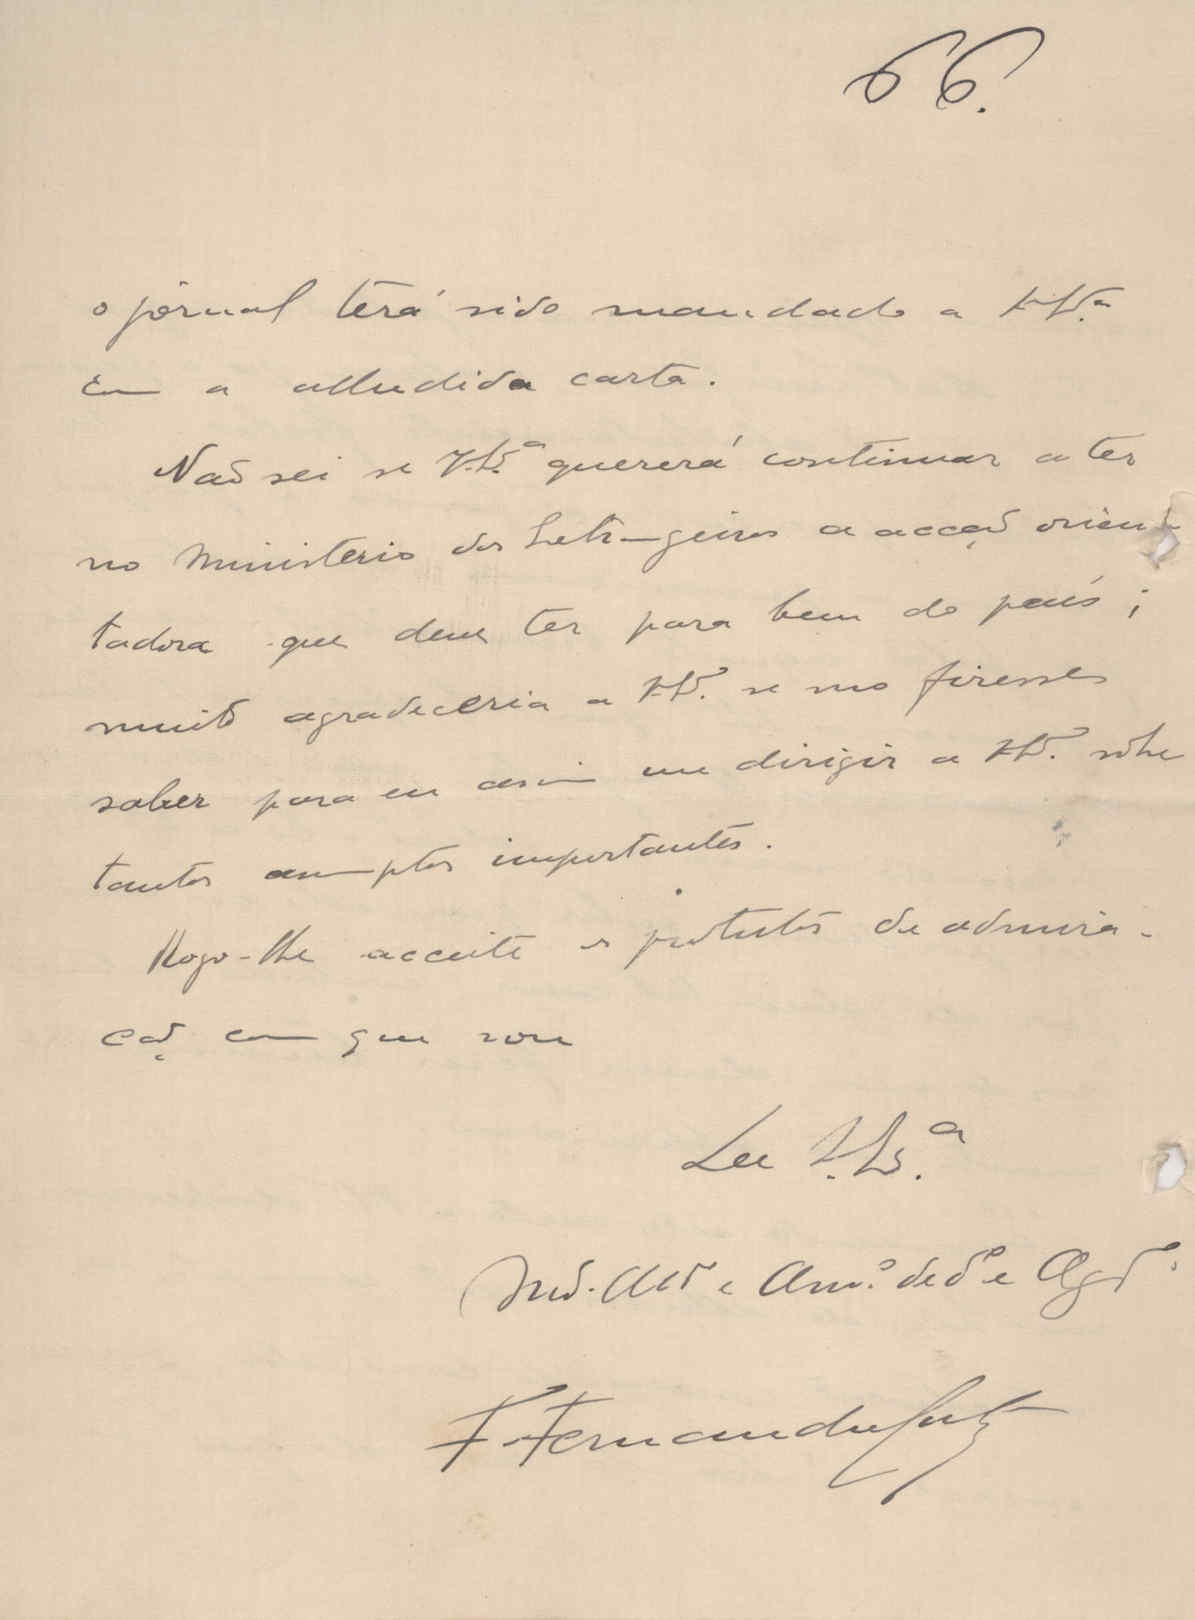 66.
o jornal terá sido mandado a V.S.ª
com a alludida carta.
Não sei se V.S.ª quererá continuar a ter
no Ministerio dos Estrangeiros a acção orien-
tadora que deve ter para bem do país;
muito agradeceria a V.S.ª se mo fizesse
saber para eu assim me dirigir a V.S.ª sôbre
tantos assumptos importantes.
Rogo-lhe acceite os protestos de admira-
ção com que sou
De V.S.ª
Am.º ded.º e
F. Fernandes